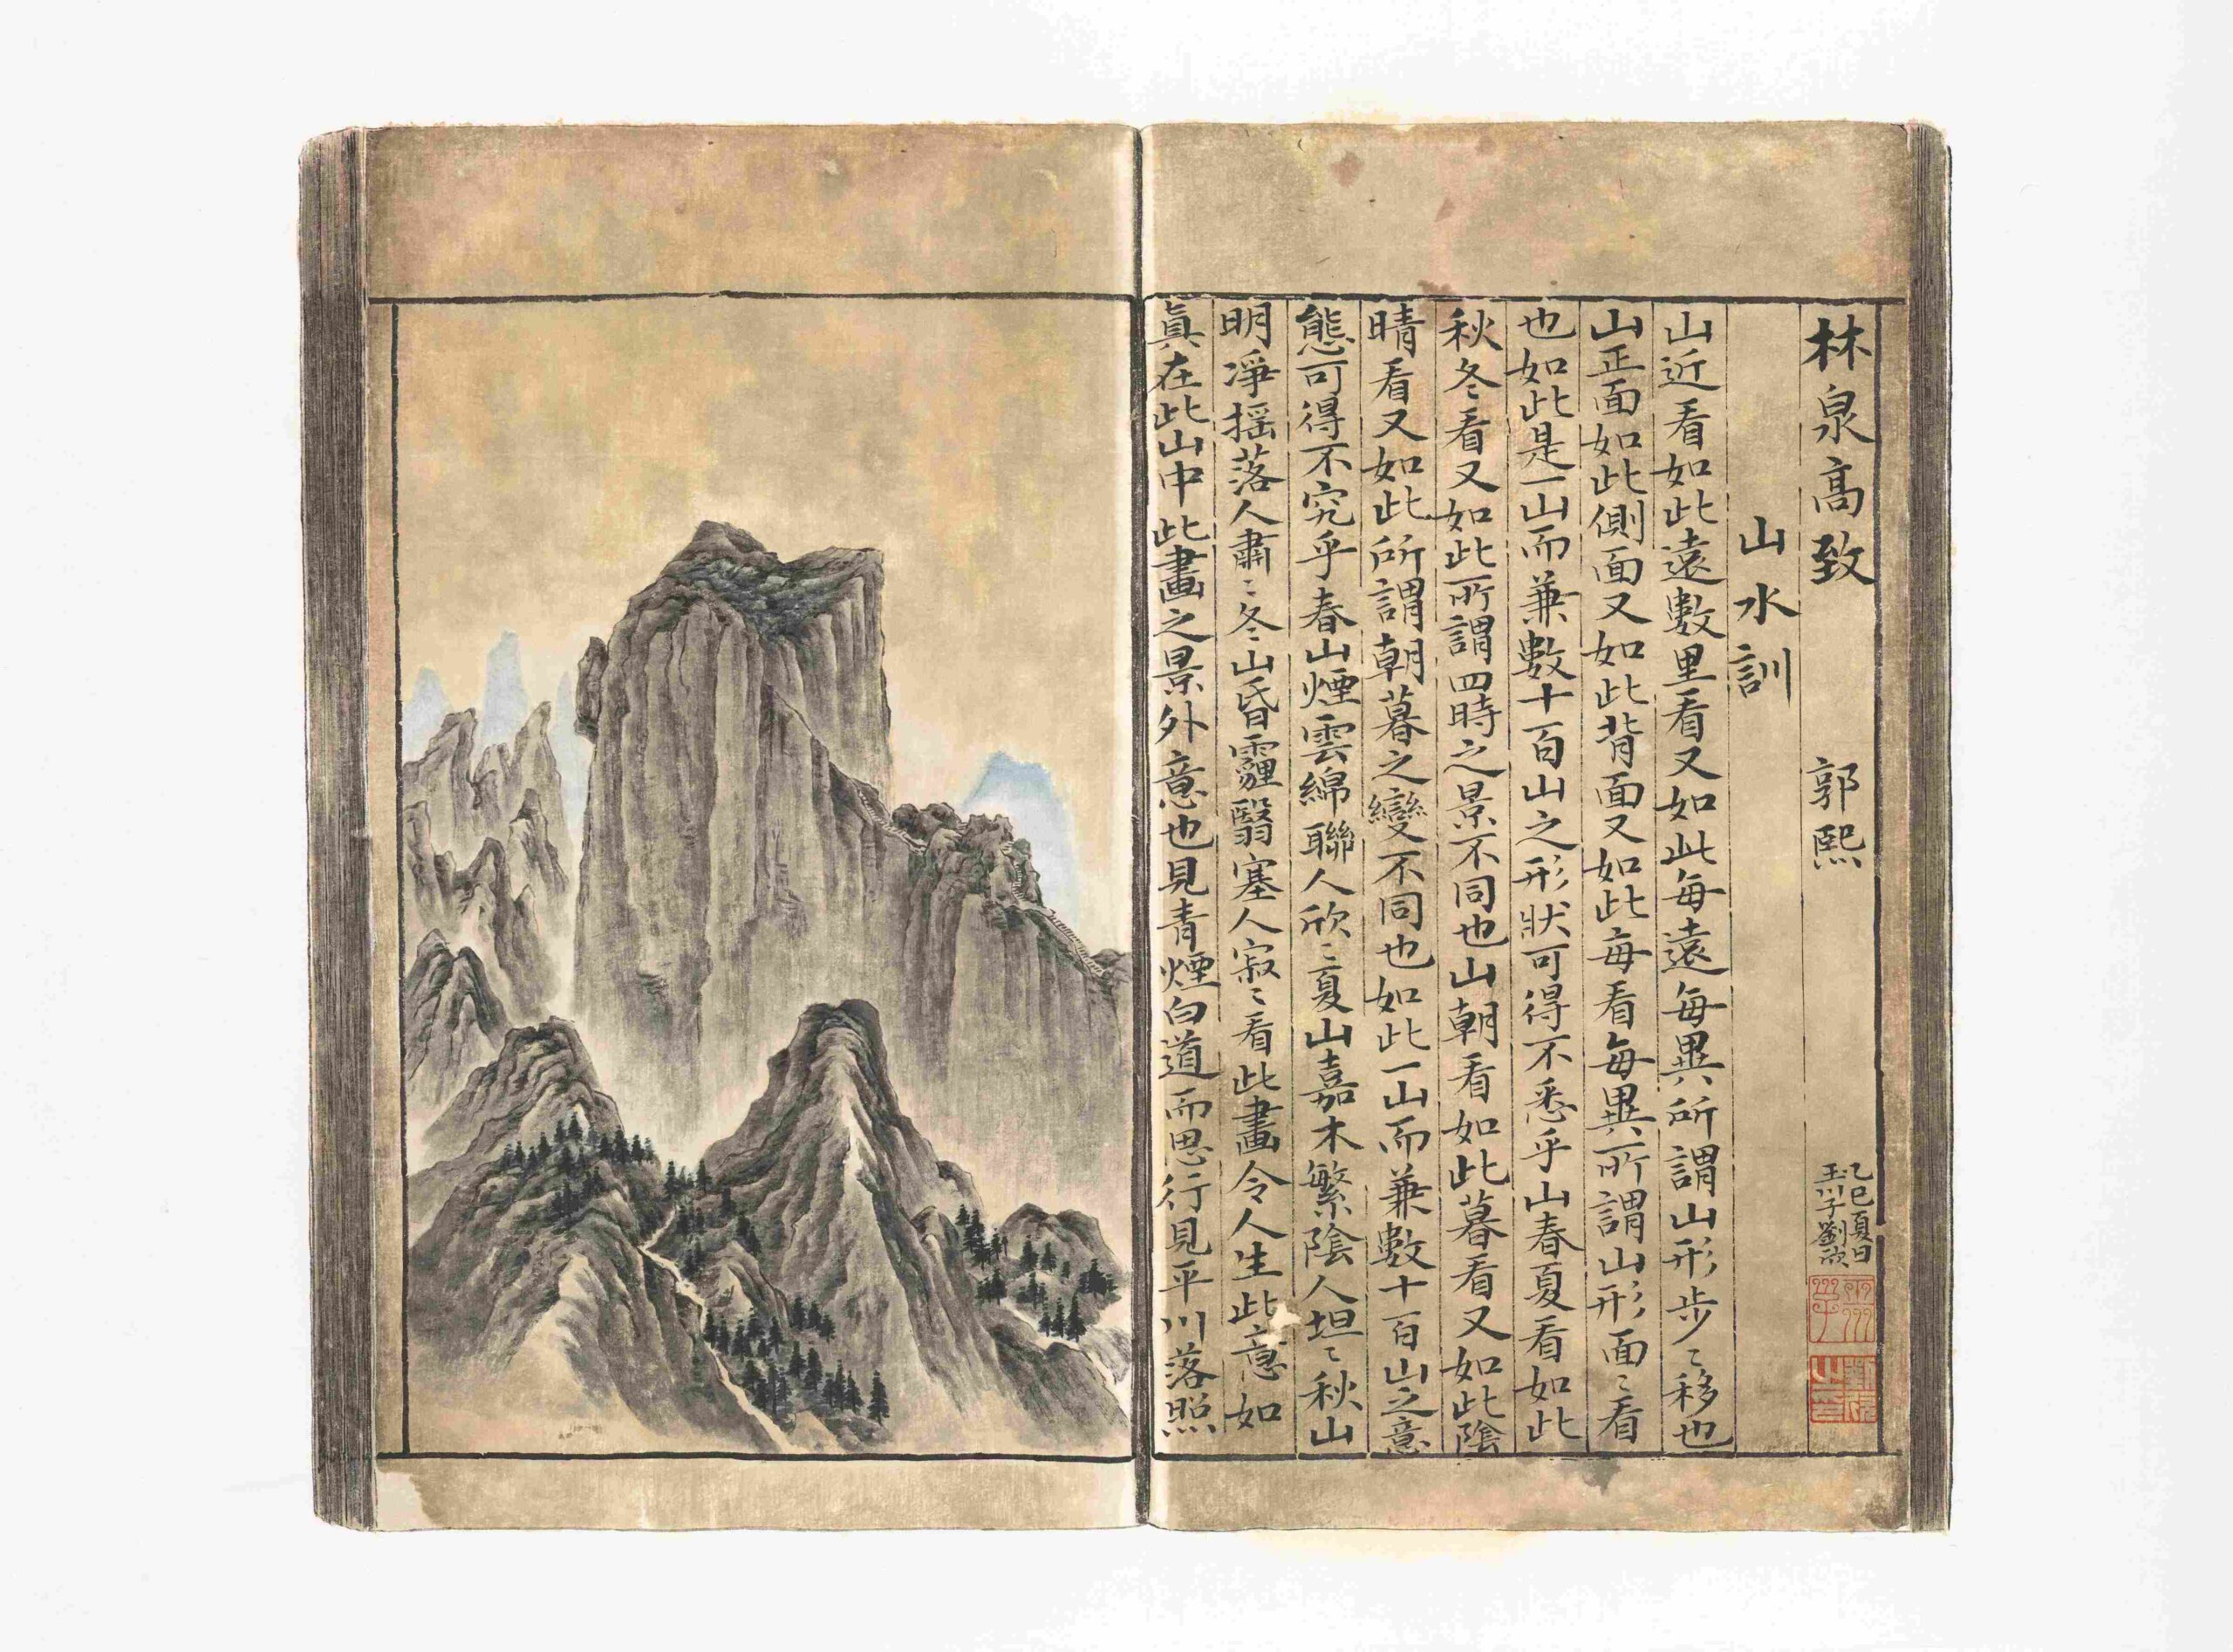 林泉高致 郭熙
乙巳夏日
玉川子劉欣
山水訓
山近看如此遠數里看又如此每遠每異所謂山形步〻移也
山正面如此側面又如此背面又如此每看每異所謂山形面〻看
也如此是一山而兼數十百山之形狀可得不悉乎山春夏看如此
秋冬看又如此所謂四時之景不同也山朝看如此暮看又如此陰
晴看又如此所謂朝暮之變不同也如此一山而兼數十百山之意
態可得不究乎春山煙雲綿聯人欣〻夏山嘉木繁陰人坦〻秋山
明淨摇落人肅〻冬山昏霾翳塞人寂〻看此畫令人生此意如
眞在此山中此畫之景外意也見青煙白道而思行見平川落照